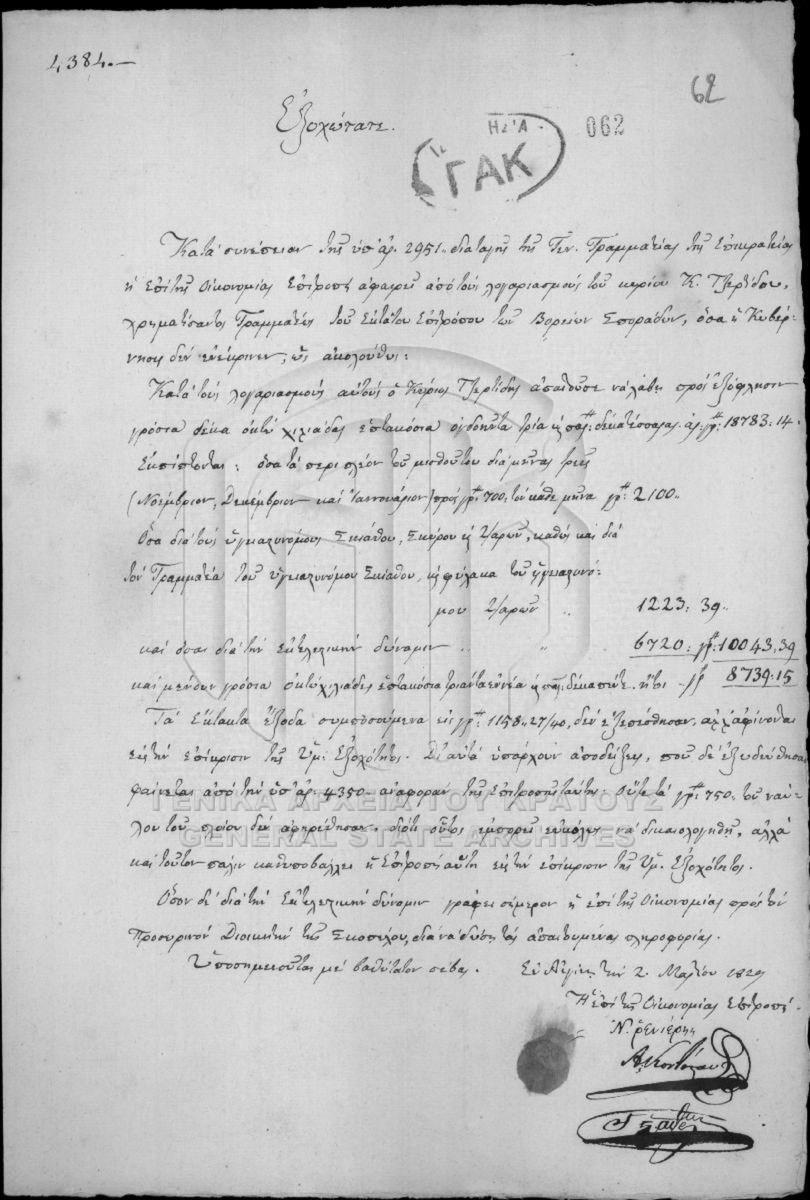 4384.—
62
Ἐξοχώτατε.
062
ΓΑΚ
Κατὰ συνέπειαν τῆς ὑπ' ἀρ. 2951.. διαταγῆς τῆς Γεν. Γραμματείας τῆς Ἐπικρατείας
ἡ ἐπὶ τῆς Οἰκονομίας Ἐπιτροπὴ ἀφαιρεῖ ἀπὸ τοὺς λογαριασμοὺς τοῦ κυρίου Κ. Τζερτίδου,
χρηματίσαντος Γραμματέως τοῦ Ἐκτάκτου Ἐπιτρόπου τῶν Βορείων Σποράδων, ὅσα ἡ Κυβέρ-
νησις δὲν ἐνέκρινεν, ὡς ἀκολούθως:
Κατὰ τοὺς λογαριασμοὺς αὐτοὺς ὁ Κύριος Τζερτίδης ἀπαιτοῦσε νὰ λάβῃ πρὸς ἐξόφλησιν
γρόσια δέκα ὀκτὼ χιλιάδας ἑπτακόσια ὀγδοῆντα τρία δεκατέσσαρας 18783:14.
Ἐκπίπτονται: ὅσα τὰ περιπλέον τοῦ μισθοῦ του διὰ μῆνας τρεῖς
(Νοέμβριον, Δεκέμβριον καὶ Ἰαννουάριον) πρὸς γρ. 700: τὸν κάθε μῆνα γρ: 2100..
Ὅσα διὰ τοὺς ὑγειαστυνόμους Σκιάθου, Σκύρου Ψαρῶν, καθὼς καὶ διὰ
τὸν Γραμματέα τοῦ ὑγειαστυνόμου Σκιάθου, φύλακα τοῦ ὑγειαστυνό-
μου Ψαρῶν .. 1223:39..
καὶ ὅσα διὰ τὴν ἐκτελεστικὴν δύναμιν .. .. 6720: γρ: 10043,39
καὶ μένουν γρόσια ὀκτὼ χιλιάδες ἑπτακόσια τριάντα ἐννέα δεκαπέντε. ἤτοι γρ 8739:15
Τὰ Ἔκτακτα ἔξοδα συμποσούμενα εἰς γρ: 1158..27/40, δὲν ἐξεπέσθησαν, ἀλλ' ἀφίνονται
εἰς τὴν ἐπίκρισιν τῆς Ὑμ: Ἐξοχότητος. Δι' αὐτὰ ὑπάρχουν ἀποδείξεις, ποὺ δὲ ἐξωδεύθησαν
φαίνεται ἀπὸ τὴν ὑπ' ἀρ: 4350.. ἀναφορὰν τῆς Ἐπιτροπῆς ταύτης. Οὔτε τὰ γρ: 750. τοῦ ναύ-
λου τοῦ πλοίου δὲν ἀφῃρέθησαν, διότι οὗτος ἐμπορεῖ εὐκόλως νὰ δικαιολογηθῇ, ἀλλὰ
καὶ τοῦτον πάλιν καθυποβάλλει ἡ Ἐπιτροπὴ αὕτη εἰς τὴν ἐπίκρισιν τῆς Ὑμ. Ἐξοχότητος.
Ὅσον δὲ διὰ τὴν Ἐκτελεστικὴν δύναμιν γράφει σήμερον ἡ ἐπὶ τῆς Οἰκονομίας πρὸς τὸν
Προσωρινὸν Διοικητὴν τῆς Σκοπέλου, διὰ νὰ δώσῃ τὰς ἀπαιτουμένας πληροφορίας.
Ὑποσημειοῦται μὲ βαθύτατον σέβας. Ἐν Αἰγίνῃ τὴν 2. Μαρτίου 1829
Ἡ ἐπὶ τῆς Οἰκονομίας Ἐπιτροπή.
Ν. Ῥενιέρης
Α. Κοντόσταυλος
ΓΕΝΙΚΑ ΑΡΧΕΙΑ ΤΟΥ ΚΡΑΤΟΥΣ
GENERAL STATE ARCHIVES